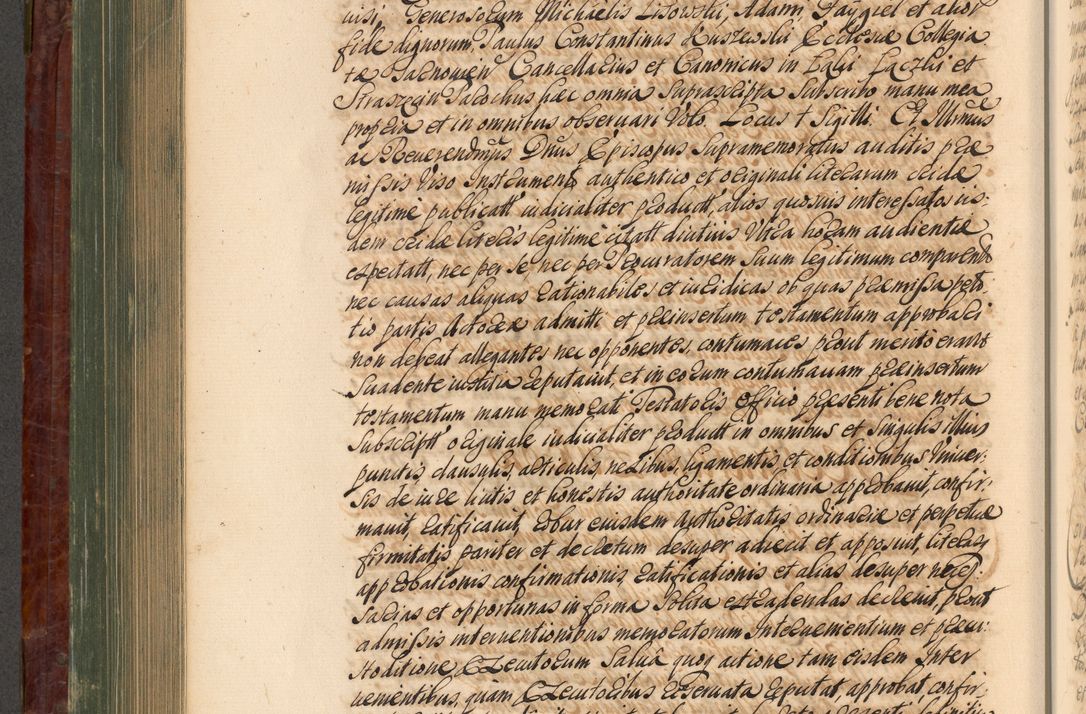 uisi, Generosorum Michaelis Lisowski, Adami et alior
fide dignorum, Paulus Constantinus Kuszewski Ecclesiæ Collegia
tæ Cancellarius et Canonicus in et
Parochus hæc omnia suprascripta Subscribo manu mea
propria et in omnibus obseruari Volo. Locus † Sigilli. Et Illrmus
ac Reuerendmus Dnus Episcopus Supramemoratus auditis præ
missis Viso Instrumento authentico et originali literarum cridæ
legitime publicatt iudicialiter productt, alios quosuis interessatos iis:
dem cridæ literis legitime citatt diutius Vltra horam audientiæ
expectatt, nec per se, nec per Procuratorem Suum legitimum comparentes
nec causas aliquas rationabiles et iuridicas ob quas præmissa peti
tio partis Actoreæ admitti et præinsertum testamentum approbari
non debeat allegantes nec opponentes, contumaces prout merito erant
Suadente iustitia reputauit, et in eorum contumaciam præinsertum
testamentum manu memorati Testatoris officio præsenti bene nota
Subscriptt originale iudicialiter productt in omnibus et singulis illius
punctis, clausulis, articulis, nexibus, ligamentis, et conditionibus Vniuer:
sis de iure licitis et honestis authoritate ordinaria approbauit, confir:
mauit, ratificauit, robur eiusdem Authoritatis ordinariæ et perpetuæ
firmitatis pariter et decretum desuper adiecit et apposuit, literas
approbationis confirmationis, ratificationis et alias desuper neces:
sarias et opportunas in forma Solita extradendas decreuit, prout
admissis interuentionibus memoratorum Interuenientium et
ditione Executorum Salua quoq actione tam eisdem Inter
uenientibus, quam Executoribus reseruata reputat, approbat, confir: